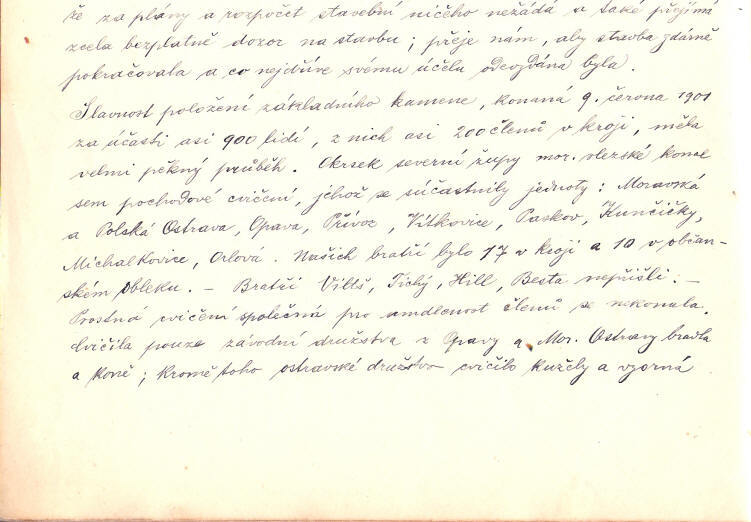 že za plány a rozpočet stavební ničeho nežádá a také přijímá
zcela bezplatně dozor na stavbu; přeje nám, aby stavba zdárně
pokračovala a co nejdříve svému účelu odevzdána byla.
Slavnost položení základního kamene, konaná 9. června 1901
za účasti asi 900 lidí, z nich asi 200 členů v kroji, měla
velmi pěkný průběh. Okrsek severní župy mor. slezské konal
sem pochodové cvičení, jehož se súčastnily jednoty: Moravská
a Polská Ostrava, Opava, Přívoz, Vítkovice, Paskov, Kunčičky,
Michalkovice, Orlová. Našich bratří bylo 17 v kroji a 10 v občan-
ském obleku. – Bratří Tichý, Hill, Besta nepřišli. –
Prostná cvičení společná pro umdlenost členů se nekonala.
Cvičila pouze závodní družstva z Opavy a Mor. Ostravy bradla
a koně; kromě toho ostravské družstvo cvičilo kužely a vzorná